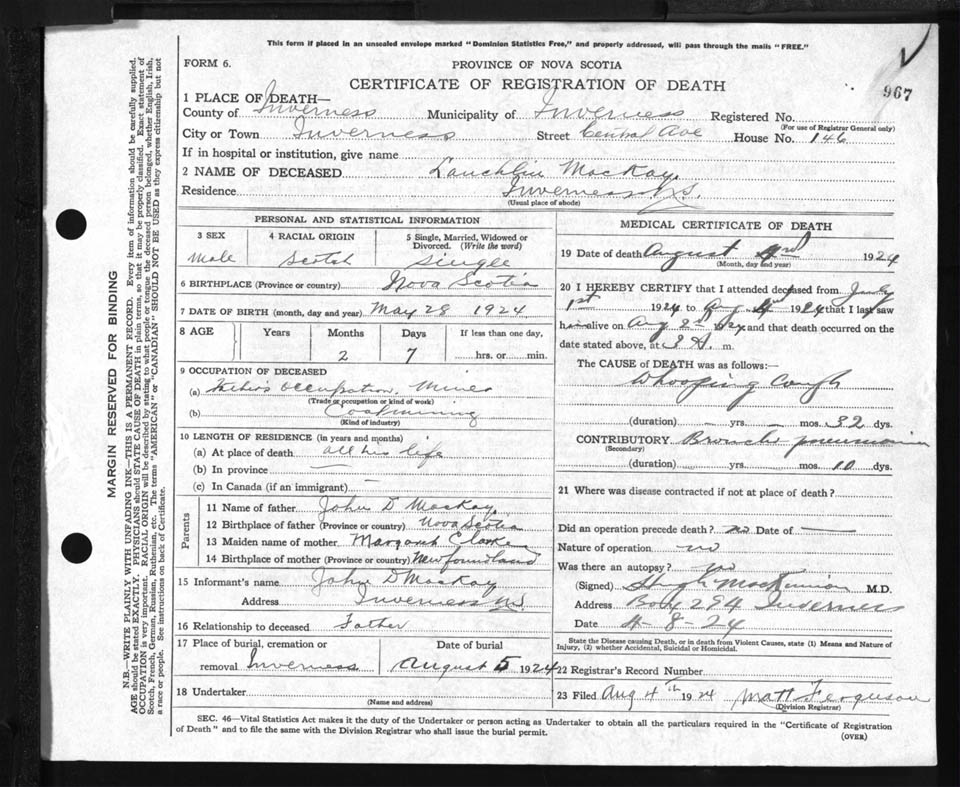 This form if placed in an unsealed envelope marked "Dominion Statistics Free," and properly addressed, will pass through the mails "FREE."
FORM 6.
PROVINCE OF NOVA SCOTIA
967
CERTIFICATE OF REGISTRATION OF DEATH
1 PLACE OF DEATH—
County of Inverness Municipality of Inverness Registered No.
(For use of Registrar General only)
City or Town Inverness Street Central Ave House No. 146
If in hospital or institution, give name
2 NAME OF DECEASED Lauchlin MacKay.
Residence Inverness N.S.
(Usual place of abode)
PERSONAL AND STATISTICAL INFORMATION
3 SEX 4 RACIAL ORIGIN 5 Single, Married, Widowed or Divorced. (Write the word)
Male Scotch Single
6 BIRTHPLACE (Province or country) Nova Scotia
7 DATE OF BIRTH (month, day and year) May 28 1924
8 AGE Years Months Days If less than one day,
2 7 hrs. or min.
9 OCCUPATION OF DECEASED
(a) Father's occupation, Miner
(Trade or occupation or kind of work)
(b) Coalmining
(Kind of industry)
10 LENGTH OF RESIDENCE (in years and months)
(a) At place of death all his life
(b) In province —
(c) In Canada (if an immigrant) —
Parents
11 Name of father John D MacKay.
12 Birthplace of father (Province or country) Nova Scotia
13 Maiden name of mother Margaret Clarke
14 Birthplace of mother (Province or country) Newfoundland
15 Informant's name John D MacKay
Address Inverness N.S.
16 Relationship to deceased Father
17 Place of burial, cremation or Date of burial
removal Inverness August 5 1924
18 Undertaker
(Name and address)
MEDICAL CERTIFICATE OF DEATH
19 Date of death August 1924
(Month, day and year)
20 I HEREBY CERTIFY that I attended deceased from July
1st 1924 to Aug 1924 that I last saw
h alive on Aug 2nd 1924 and that death occurred on the
date stated above, at 3 A. m.
The CAUSE OF DEATH was as follows:—
Whooping Cough
(duration) yrs. mos. 32 dys.
CONTRIBUTORY Broncho pneumonia
(Secondary)
(duration) yrs. mos. 10 dys.
21 Where was disease contracted if not at place of death?
Did an operation precede death? no Date of —
Nature of operation no
Was there an autopsy? no
(Signed) Hugh MacKinnon M.D.
Address Box 294 Inverness
Date 4-8-24
State the Disease causing Death, or in death from Violent Causes, state (1) Means and Nature of
Injury, (2) whether Accidental, Suicidal or Homicidal.
22 Registrar's Record Number
23 Filed Aug 4th 1924 Matt Ferguson
(Division Registrar)
SEC. 46—Vital Statistics Act makes it the duty of the Undertaker or person acting as Undertaker to obtain all the particulars required in the "Certificate of Registration
of Death" and to file the same with the Division Registrar who shall issue the burial permit.
(OVER)
MARGIN RESERVED FOR BINDING
N.B.—WRITE PLAINLY WITH UNFADING INK—THIS IS A PERMANENT RECORD. Every item of information should be carefully supplied.
AGE should be stated EXACTLY. PHYSICIANS should STATE CAUSE OF DEATH in plain terms, so that it may be properly classified. Exact statement of
OCCUPATION is very important. RACIAL ORIGIN will be described by stating to what people or tongue the deceased person belonged, whether English, Irish,
Scotch, French, German, Russian, Ruthenian, etc. The terms "AMERICAN" or "CANADIAN" SHOULD NOT BE USED as they express citizenship but not
a race or people. See instructions on back of Certificate.